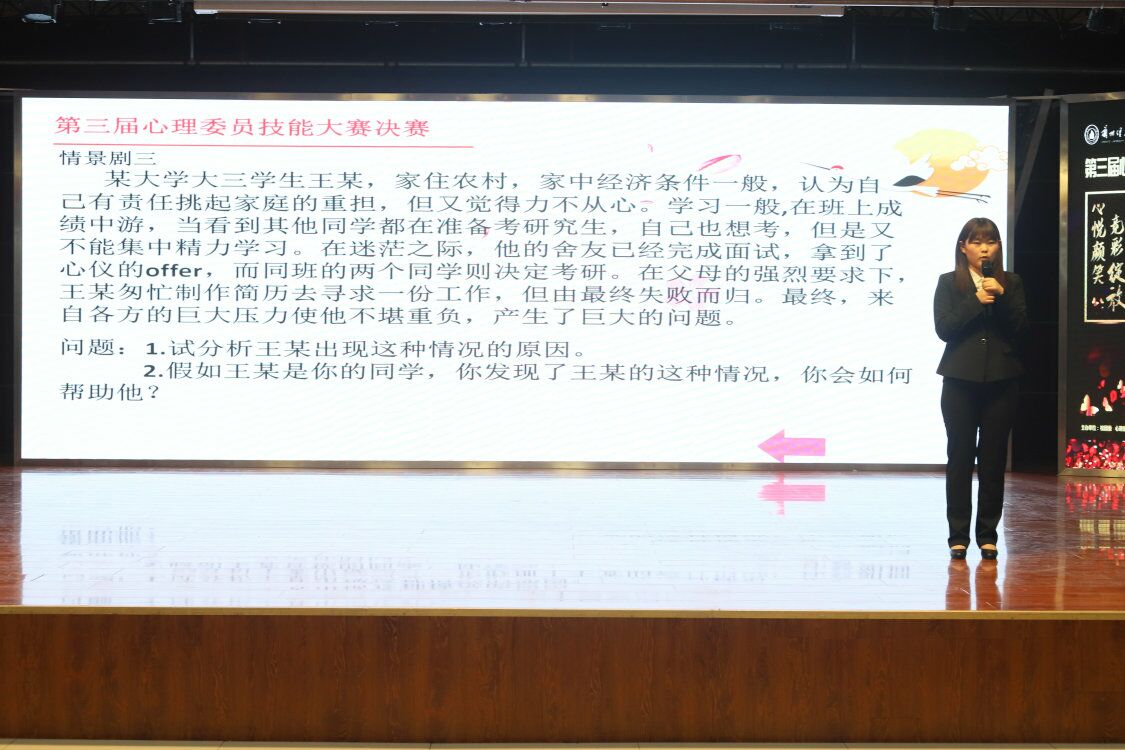 第三届心理委员技能大赛决赛
情景剧三
某大学大三学生王某，家住农村，家中经济条件一般，认为自
己有责任挑起家庭的重担，但又觉得力不从心。学习一般,在班上成
绩中游，当看到其他同学都在准备考研究生，自己也想考，但是又
不能集中精力学习。在迷茫之际，他的舍友已经完成面试，拿到了
心仪的offer，而同班的两个同学则决定考研。在父母的强烈要求下，
王某匆忙制作简历去寻求一份工作，但由最终失败而归。最终，来
自各方的巨大压力使他不堪重负，产生了巨大的问题。
问题：1.试分析王某出现这种情况的原因。
2.假如王某是你的同学，你发现了王某的这种情况，你会如何
帮助他？
第三届
心悦颜笑
竞彩绽放